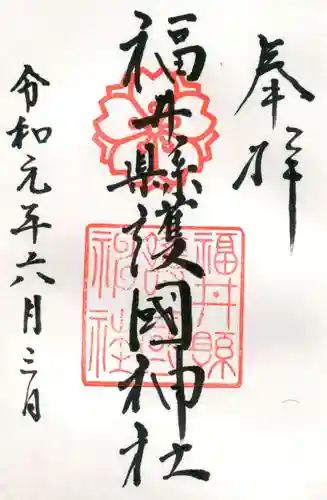 奉拝
福井縣護國神社
福井縣
護國
神社
令和元年六月三日